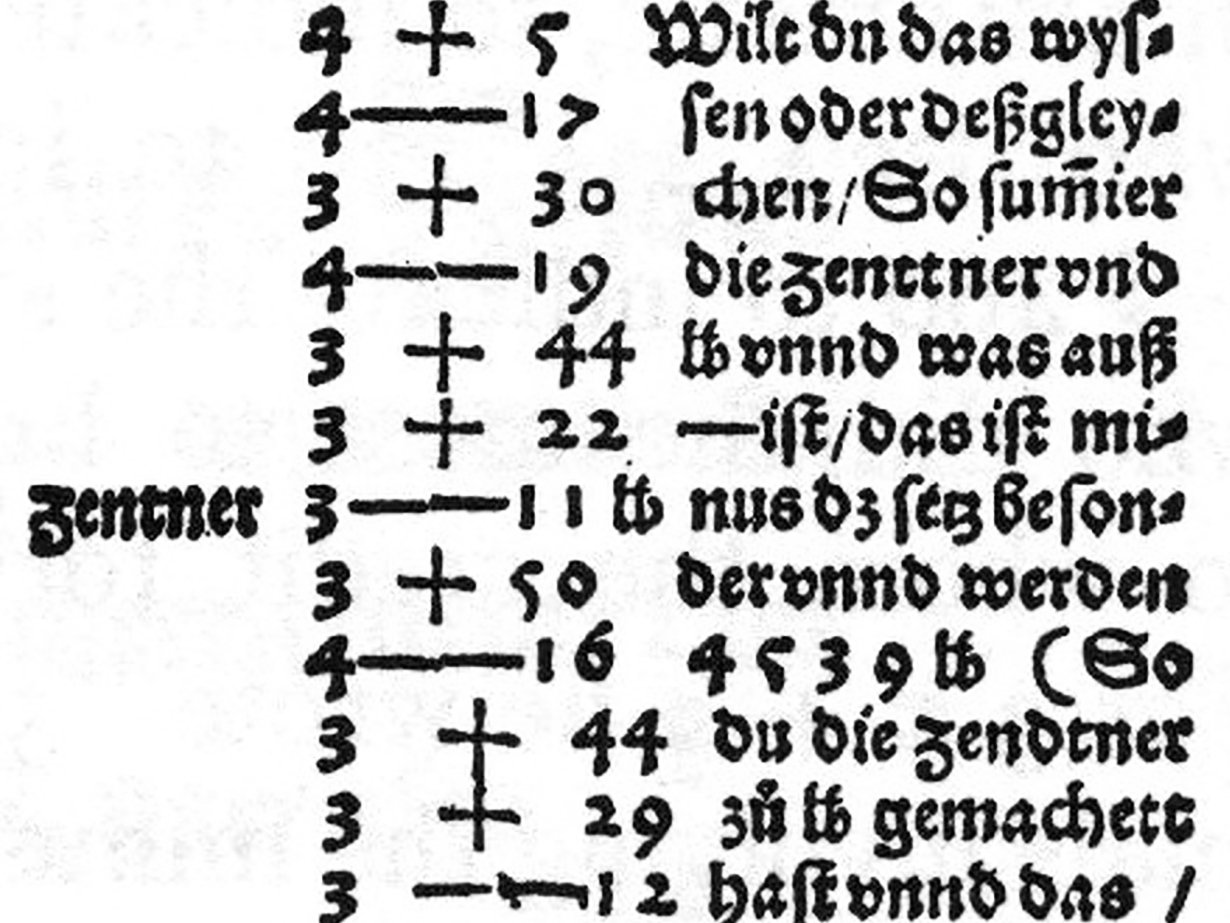 4 + 5 Wilt dn das wyſ⸗
4 — 17 ſen oder deßgley⸗
3 + 30 chen / So ſum̄ier
4 — 19 die zenttner vnd
3 + 44 ℔ vnnd was auß
3 + 22 — iſt / das iſt mi⸗
zentner 3 — 11 ℔ nus dz ſetz beſon⸗
3 + 50 der vnnd werden
4 — 16 4539 ℔ (So
3 + 44 du die zendtner
3 + 29 zů ℔ gemachett
3 — 12 haſt vnnd das /